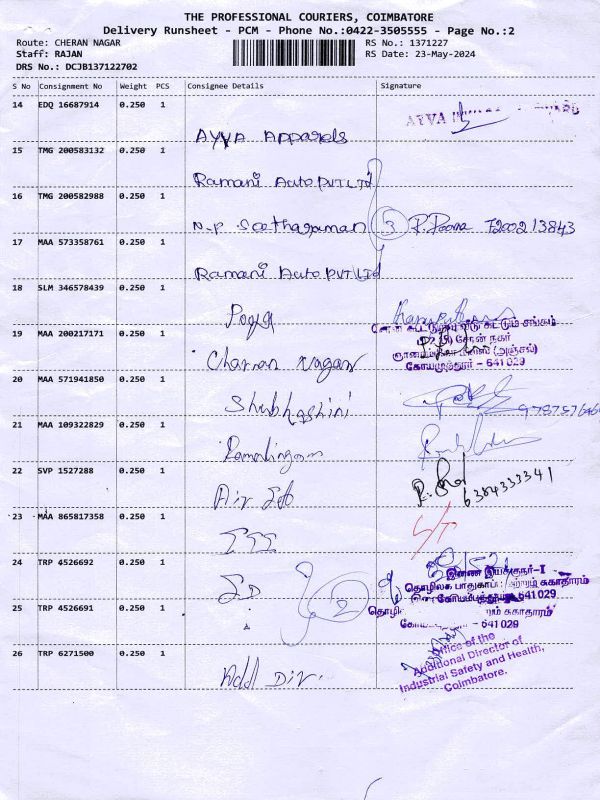 THE PROFESSIONAL COURIERS, COIMBATORE
Delivery Runsheet - PCM - Phone No.:0422-3505555 - Page No.:2
Route: CHERAN NAGAR RS No.: 1371227
Staff: RAJAN RS Date: 23-May-2024
DRS No.: DCJB137122702
S No Consignment No Weight PCS Consignee Details Signature
14 EDQ 16687914 0.250 1 AYYA Apparels AYYA
15 TMG 200583132 0.250 1 Ramani Auto PVT LTd
16 TMG 200582988 0.250 1 N.P Seetharaman 3 P. Poorna 7200213843
17 MAA 573358761 0.250 1 Ramani Auto PVT LTd
18 SLM 346578439 0.250 1 Pooja
19 MAA 200217171 0.250 1 Charran Nagar
கோயமுத்தூர் - 641 029
20 MAA 571941850 0.250 1 Shubhashini
21 MAA 109322829 0.250 1 Ramalingam
22 SVP 1527288 0.250 1 6384333341
23 MAA 865817358 0.250 1 S/T
24 TRP 4526692 0.250 1
இணை இயக்குநர்-I
தொழிலக பாதுகாப்பு மற்றும் சுகாதாரம்
கோயம்புத்தூர் 641 029
25 TRP 4526691 0.250 1 2
சுகாதாரம்
641 029
26 TRP 6271500 0.250 1 Addl Dir.
Office of the
Additional Director of
Industrial Safety and Health,
Coimbatore.